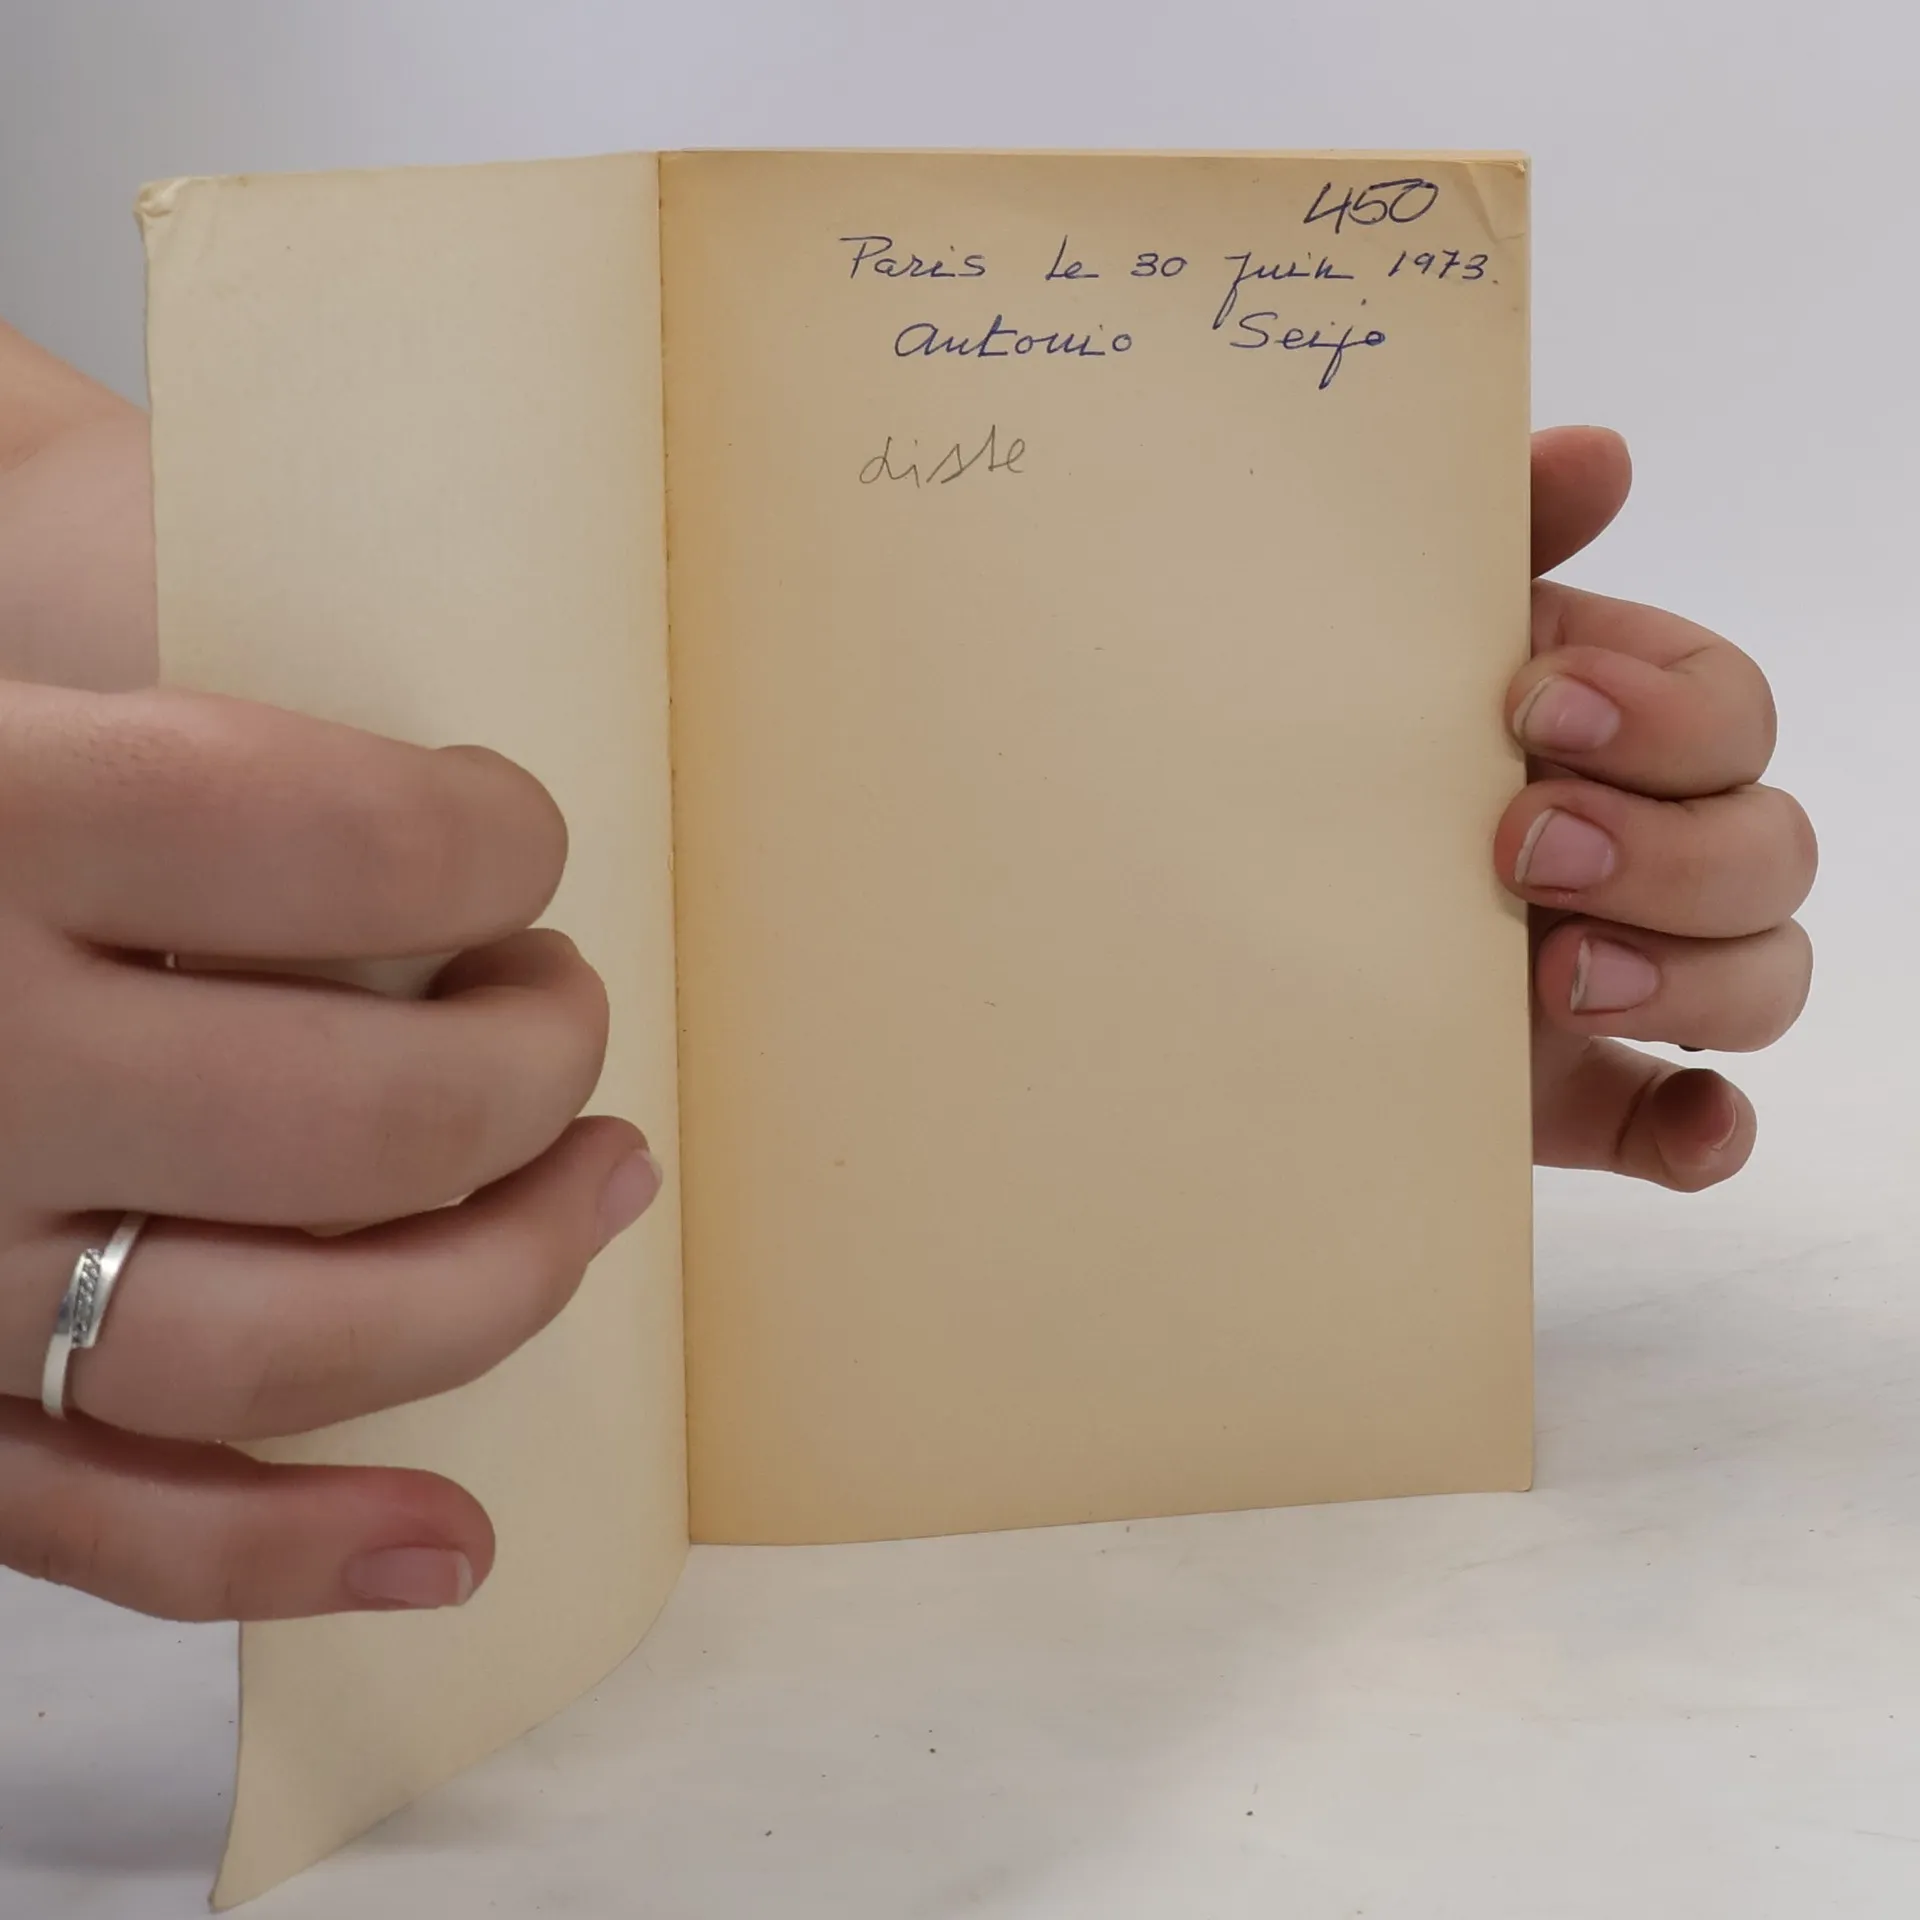 450
Paris le 30 Juin 1973.
Antonio Seijo
Liste